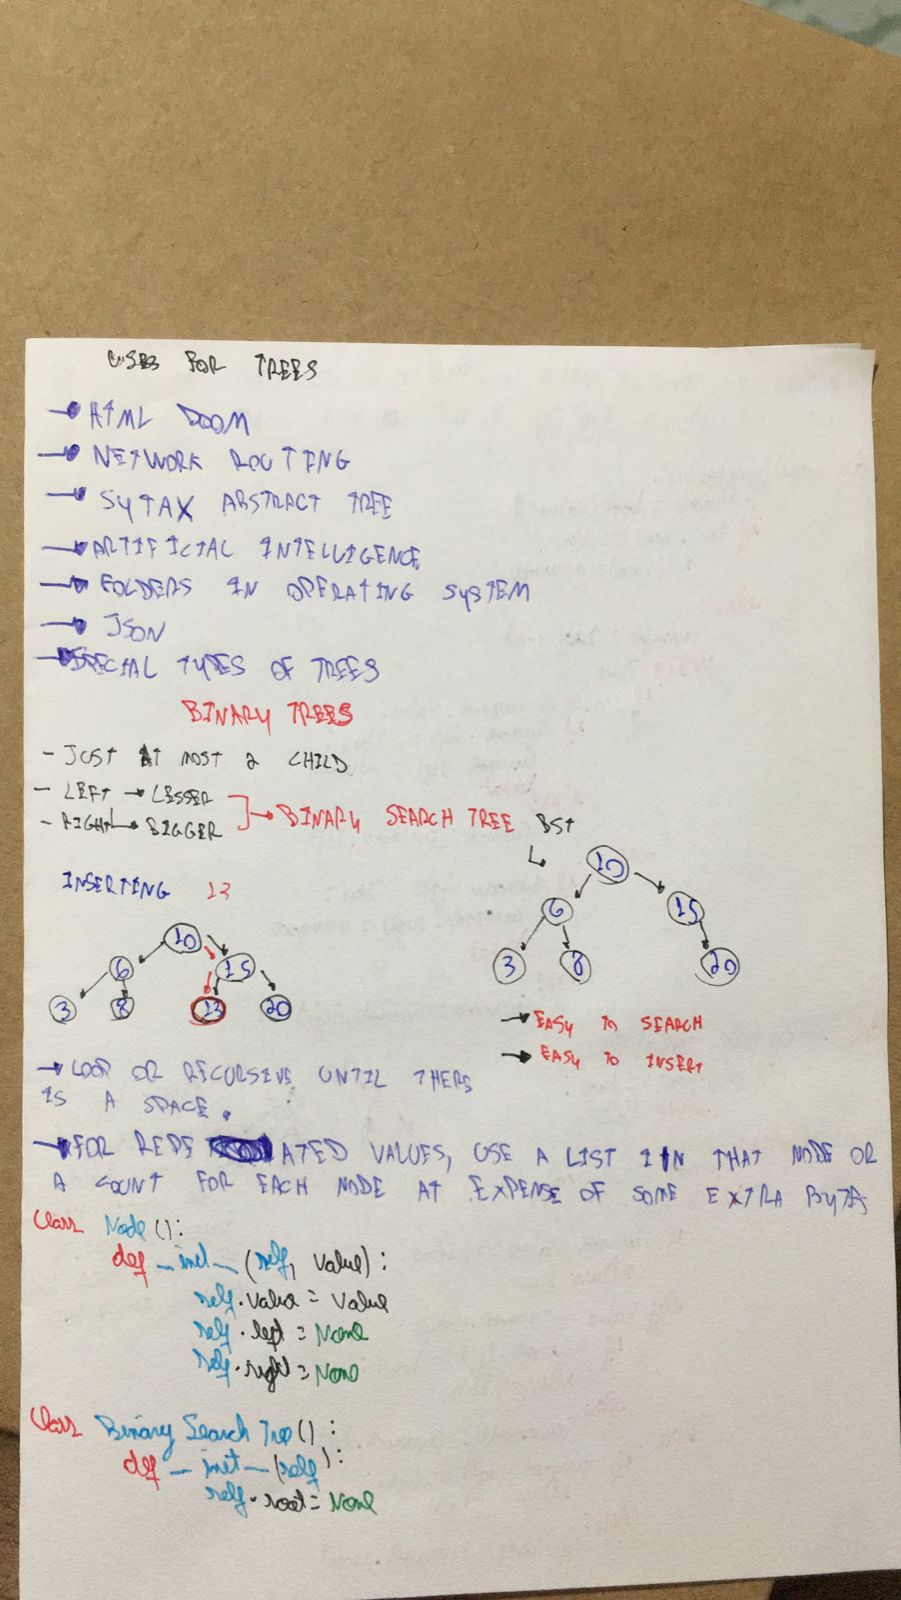 USES FOR TREES
→ HTML DOOM
→ NETWORK ROUTING
→ SYTAX ABSTRACT TREE
→ ARTIFICIAL INTELLIGENCE
→ FOLDERS IN OPERATING SYSTEM
→ JSON
→ SPECIAL TYPES OF TREES
BINARY TREES
- JUST AT MOST 2 CHILD
- LEFT → LESSER
- RIGHT → BIGGER
→ BINARY SEARCH TREE BST
INSERTING 13
10
6 15
3 8 13 20
10
6 15
3 8 20
→ EASY TO SEARCH
→ EASY TO INSERT
→ LOOP OR RECURSIVE UNTIL THERE
IS A SPACE.
→ FOR REPE ATED VALUES, USE A LIST IN THAT NODE OR
A COUNT FOR EACH NODE AT EXPENSE OF SOME EXTRA BYTES
Class Node():
def __init__(self, value):
self.value = value
self.left = None
self.right = None
Class Binary Search Tree():
def __init__(self):
self.root = None